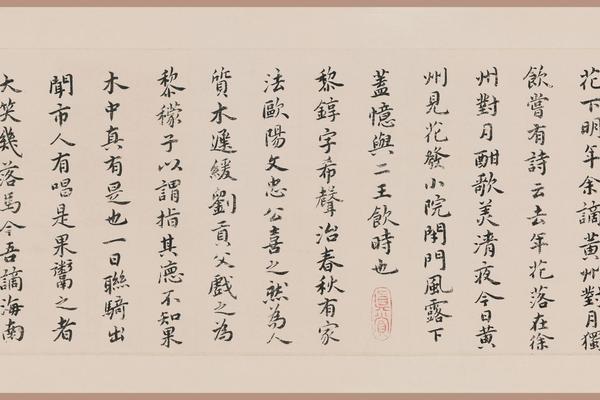 花下明年余謫黃州對月獨
飲嘗有詩云去年花落在徐
州對月酣歌美清夜今日黃
州見花發小院閉門風露下
蓋憶與二王飲時也
黎錞字希聲治春秋有家
法歐陽文忠公喜之然為人
質木遲緩劉貢父戲之為
黎檬子以謂指其德不知果
木中真有是也一日聯騎出
聞市人有唱是果鬻之者
大笑幾落馬今吾謫海南